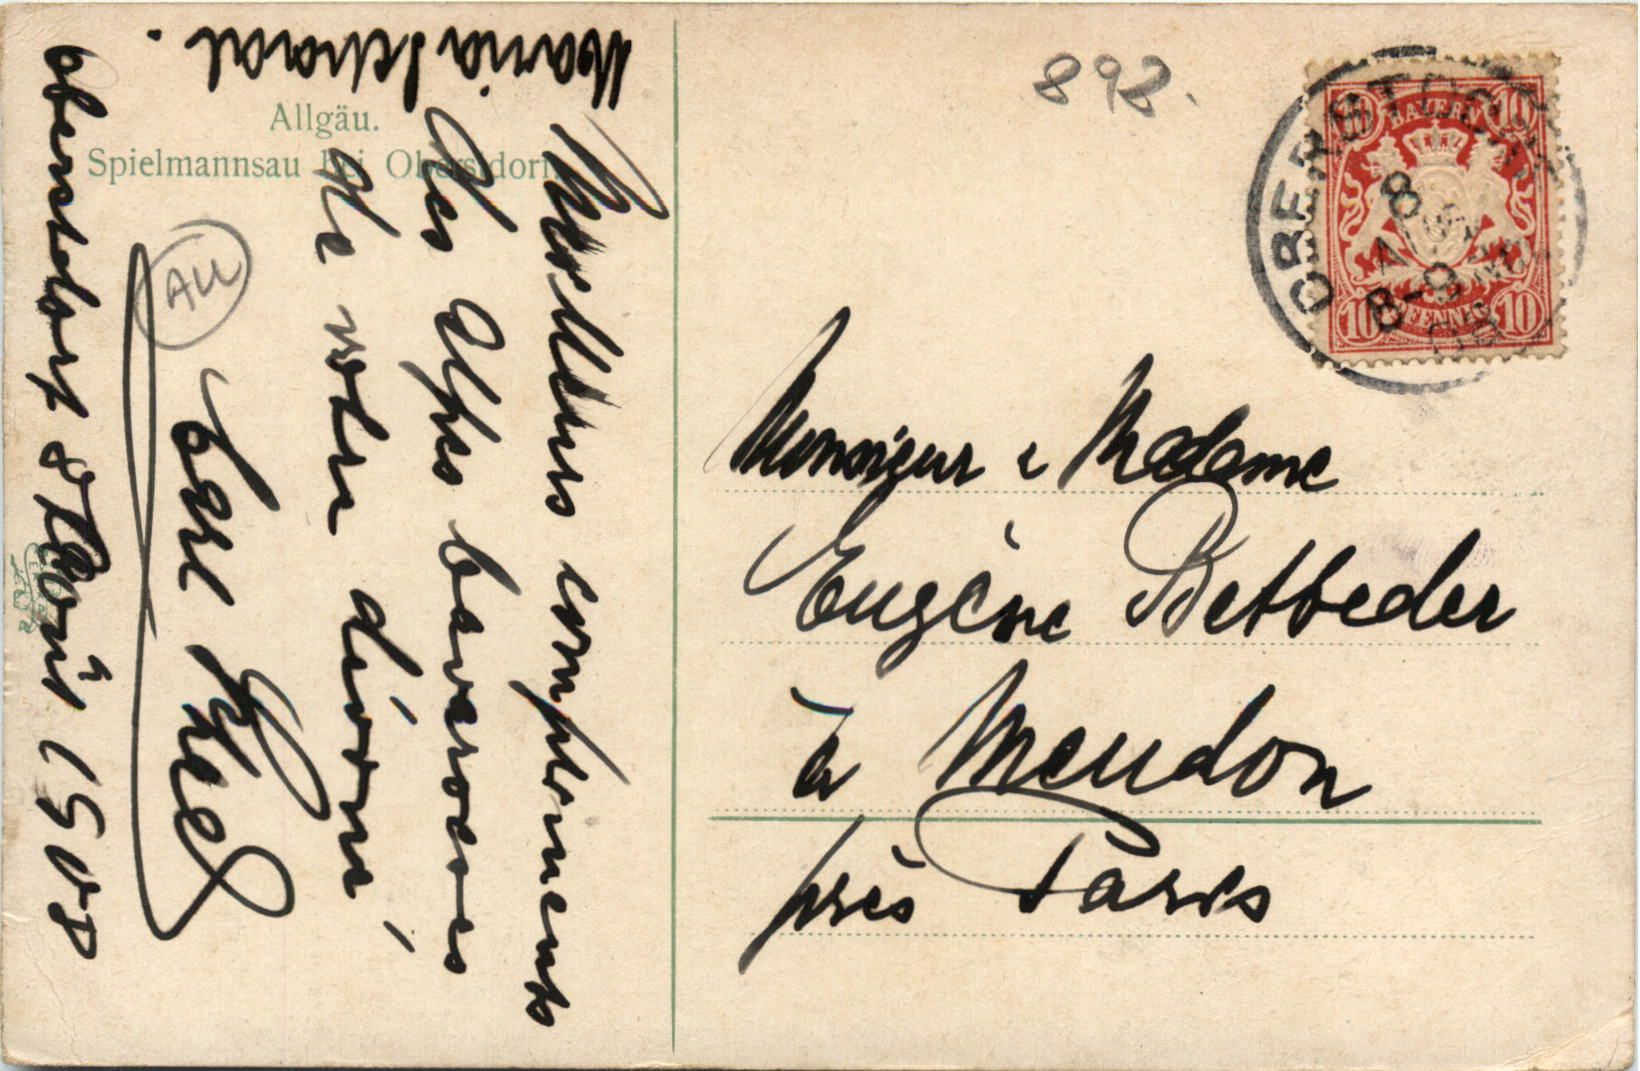 Allgäu.
Spielmannsau bei Oberstdorf.
Meilleurs compliments
des Alpes bavaroises
de votre dévoué
Carl
Oberstdorf 8 Avril 1908
Maria
AU
898.
OBERSTDORF
8 A
8-9
08
BAYERN
10 10
10 PFENNIG 10
Monsieur e Madame
Eugène Betbeder
à Meudon
près Paris